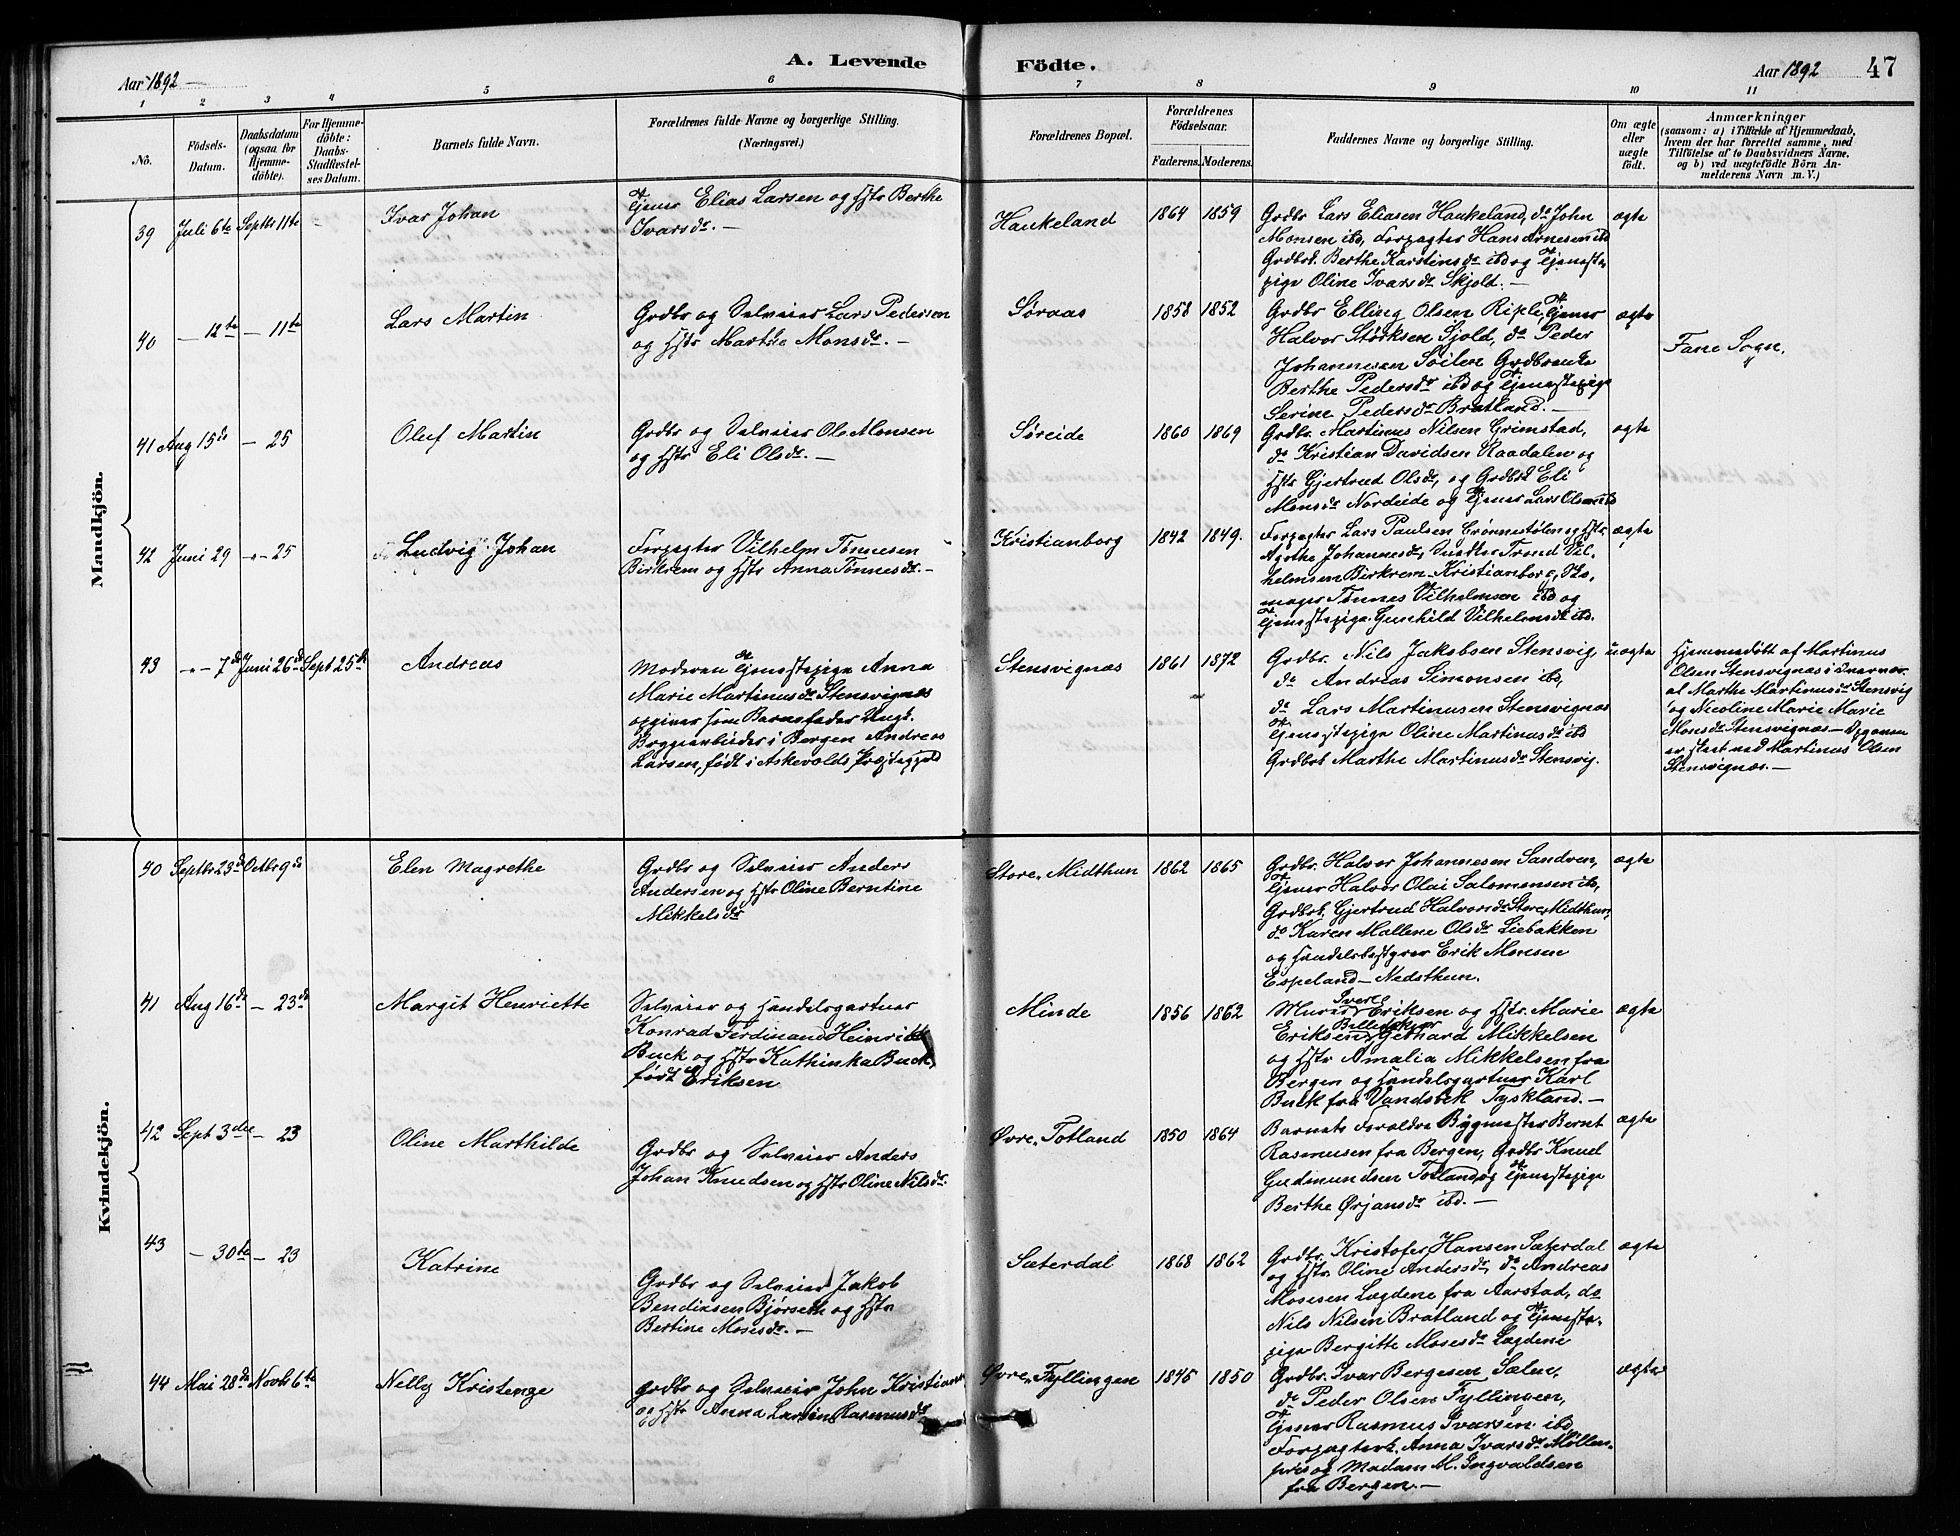 A. Levende Födte.
Aar 1892
Aar 1892 47
1 2 3 4 5 6 7 8 9 10 11
No.
Födsels-Datum.
Daabsdatum (ogsaa for Hjemme-döbte).
For Hjemme-döbte: Daabs-Stadfæstel-ses Datum.
Barnets fulde Navn.
Forældrenes fulde Navne og borgerlige Stilling.
(Næringsvei.)
Forældrenes Bopæl.
Forældrenes Födselsaar.
Faderens. Moderens.
Faddernes Navne og borgerlige Stilling.
Om ægte eller uægte födt.
Anmærkninger
(saasom: a) i Tilfælde af Hjemmedaab,
hvem der har forrettet samme, med
Tilföielse af to Daabsvidners Navne.
og b) ved uægtefödte Börn An-
melderens Navn m. V.)
Mandkjön.
39 Juli 6te Septbr 11te -
Ivar Johan
Tjener Elias Larsen og Hstr Berthe
Ivarsdr. -
Haukeland 1864 1859
Grdbr Lars Eliasen Haukeland, do John
Monsen ibd, Forpagter Hans Arnesen ibd
Grdbrk. Berthe Karstinsdr ibd og Tjeneste-
pige Oline Ivarsdr Skjold. -
ægte
40 - 12te - 11te
Lars Martin
Grdbr og Selveier Lars Pedersen
og Hstr Marthe Monsdr. -
Søraas 1858 1852
Grdbr Elling Olsen Riple, Tjener
Halvor Størksen Sjold, do Peder
Johannesen Soilen Grdbrenke
Berthe Pedersdr ibd og Tjenestepige
Serine Pedersdr Bratland. -
ægte
Fane Sogn.
41 Aug 15de - 25
Oluf Martin
Grdbr og Selveier Ole Monsen
og Hstr Eli Olsdr. -
Søreide 1860 1869
Grdbr. Martinus Nilsen Grimstad,
do Kristian Davidsen Raadalen og
Hstr Gjertrud Olsdr, og Grdbrk Eli
Monsdr Nordeide og Tjener Lars Olsen ibd
ægte
42 Juni 29 -"- 25
Ludvig Johan
Forpagter Vilhelm Tønnesen
Birkrem og Hstr Anna Tønnesdr. -
Kristianborg 1842 1849.
Forpagter Lars Paulsen Grønnestølen og Hstr.
Agathe Johannesdr, Snedker Trond Vil-
helmsen Birkrem Kristianborg, Sko-
mager Tønnes Vilhelmsen ibd og
Tjenestepige Gunhild Vilhelmsdr ibd.
ægte
43 -"- 7de Juni 26de Sept 25de
Andreas
Moderen Tjenestepige Anna
Marie Martinusdr Stensvignæs
opgiver som Barnefader Ungk.
Bryggearbeider i Bergen Andreas
Larsen, født i Askevolds Præstegjeld
Stensvignæs 1861 1872
Grdbr. Nils Jakobsen Stensvig
do Andreas Simonsen ibd,
do Lars Martinusen Stensvignæs
Tjenestepige Oline Martinusdr ibd
Grdbrk Marthe Martinusdr Stensvig.
uægte
Hjemmedøbt af Martinus
Olsen Stensvignæs i Nærvær
af Marthe Martinusdr Stensvig
og Nicoline Marie Marie
Monsdr Stensvignæs - Opgaven
er skeet ved Martinus Olsen
Stensvignæs. -
Kvindekjön.
40 Septbr 23de Octbr 9de
Elen Magrethe
Grdbr og Selveier Anders
Andersen og Hstr Oline Berntine
Mikkelsdr
Store, Midthun 1862 1865
Grdbr. Halvor Johannesen Sandven,
Tjener Halvor Olai Salomonsen ibd,
Grdbrk. Gjertrud Halvorsdr Store, Midthun,
do Karen Mallene Olsdr Liebakken
og Handelsbestyrer Erik Monsen
Espeland - Nedsthun.
ægte
41 Aug 16de - 23de
Margit Henriette
Selveier og Handelsgartner
Konrad Ferdinand Heinrich
Buck og Hstr Kathinka Buck,
født Eriksen
Minde 1856 1862
Murer Sverre Eriksen og Hstr. Marie
Eriksen, Billedskjær Gebhard Mikkelsen
og Hstr Amalia Mikkelsen fra
Bergen og Handelsgartner Karl
Buck fra Vandsbek Tyskland. -
ægte
42 Sept 3die - 23
Oline Marthilde
Grdbr og Selveier Anders
Johan Knudsen og Hstr Oline Nilsdr.
Øvre, Totland 1850 1864
Barnets Forældre Bygmester Bernt
Rasmusen fra Bergen, Grdbr Knud
Gudmundsen Totland og Tjenestepige
Berthe Ørjansdr ibd. -
ægte
43 - 30te - 23
Katrine
Grdbr og Selveier Jakob
Bendixsen Bjørseth og Hstr
Bertine Mosesdr. -
Sæterdal 1868 1862
Grdbr. Kristofer Hansen Sæterdal
og Hstr. Oline Andersdr, do Andreas
Mosesen Lægdene fra Aarstad, do
Nils Nilsen Bratland og Tjeneste-
pige Bergitte Mosesdr Lægdene
ægte
44 Mai 28de Novbr 6te
Nelly Kristenze
Grdbr og Selveier John Kristians
og Hstr Anna Larsine Rasmusdr
Øvre, Fyllingen 1845 1850
Grdbr. Ivar Bergesen Sælen,
do Peder Olsen Fyllingen,
Tjener Rasmus Ivarsen ibd,
Forpagterk. Anna Ivarsdr Møllen-
pris og Madam M. Ingvaldsen
fra Bergen. -
ægte